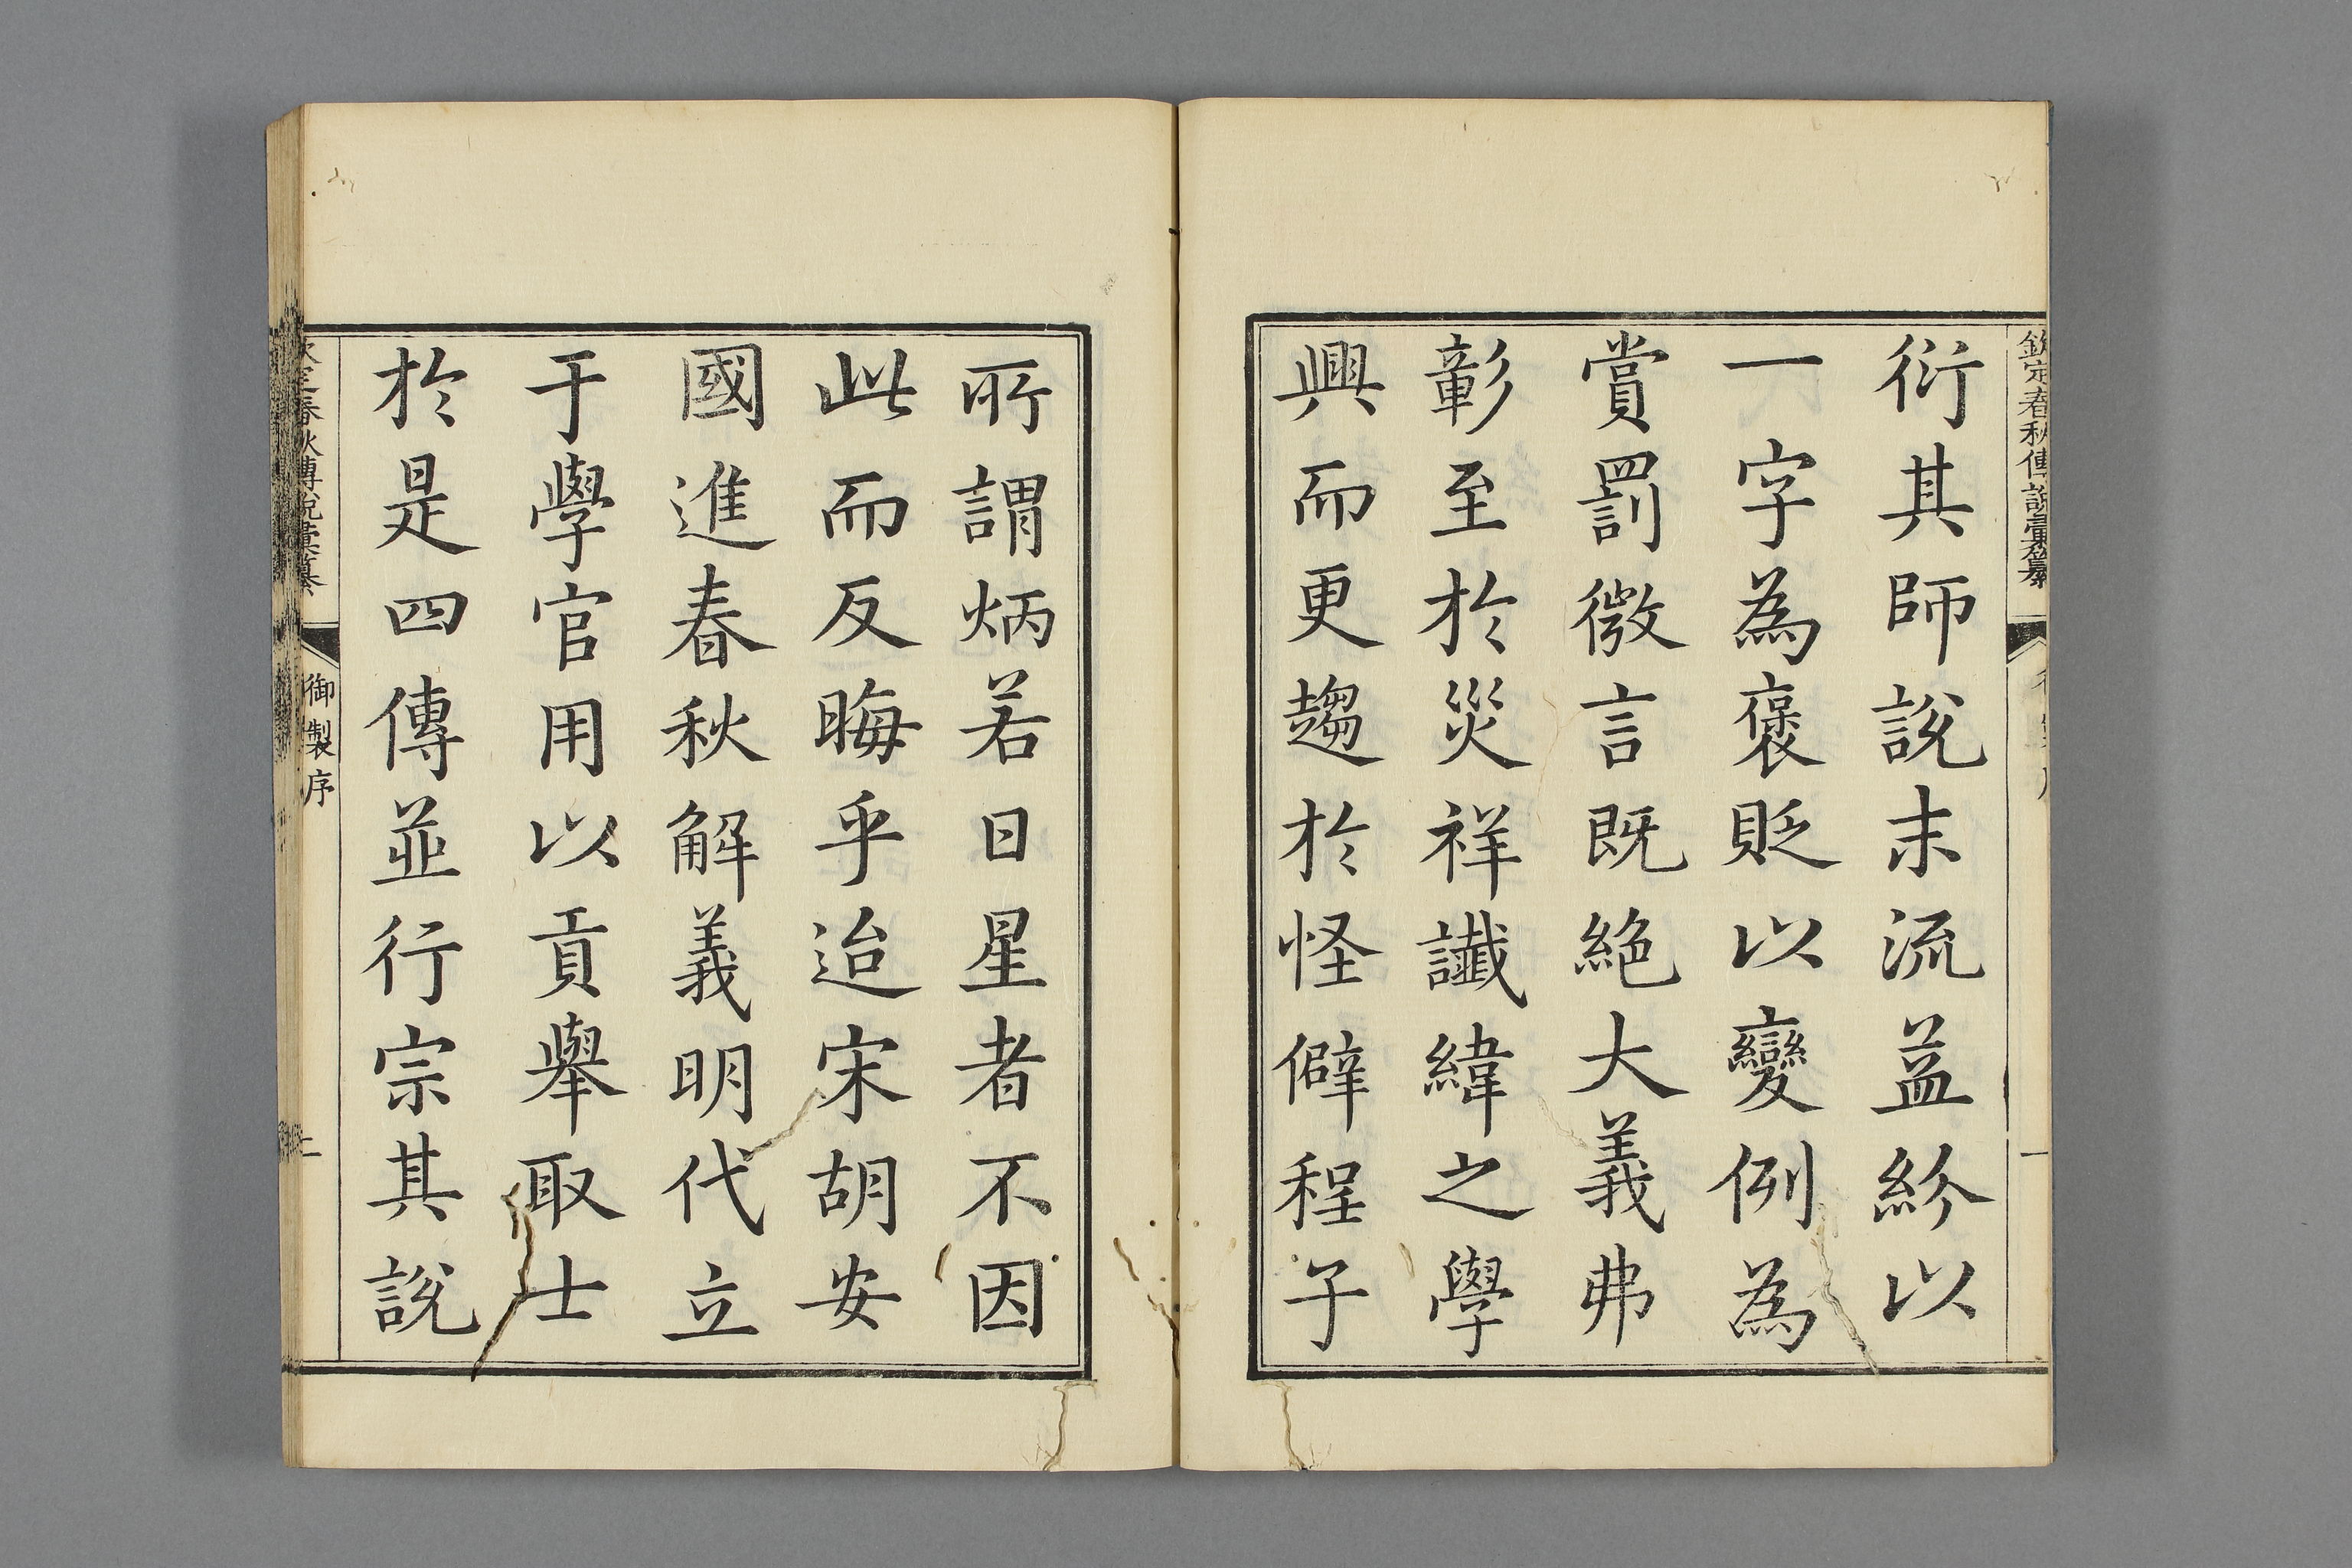 欽定春秋傳說彙纂
衍其師說末流益紛以
一字為褒貶以變例為
賞罰微言既絕大義弗
彰至於災祥讖緯之學
興而更趨於怪僻程子
所謂炳若日星者不因
此而反晦乎迨宋胡安
國進春秋解義明代立
于學官用以貢舉取士
於是四傳並行宗其說
春秋傳說彙纂
御製序